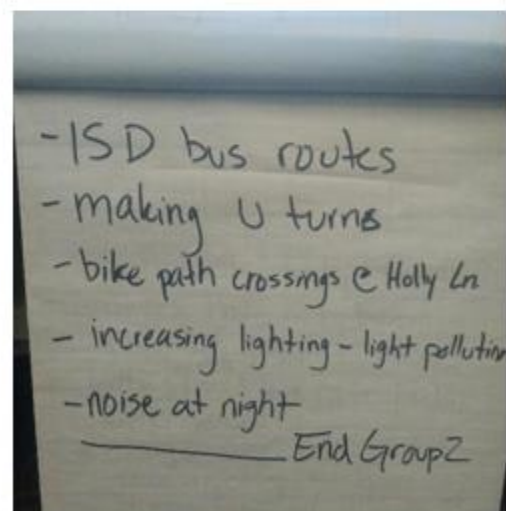 - ISD bus routes
- making U turns
- bike path crossings @ Holly Ln
- increasing lighting - light pollution
- noise at night
End Group 2